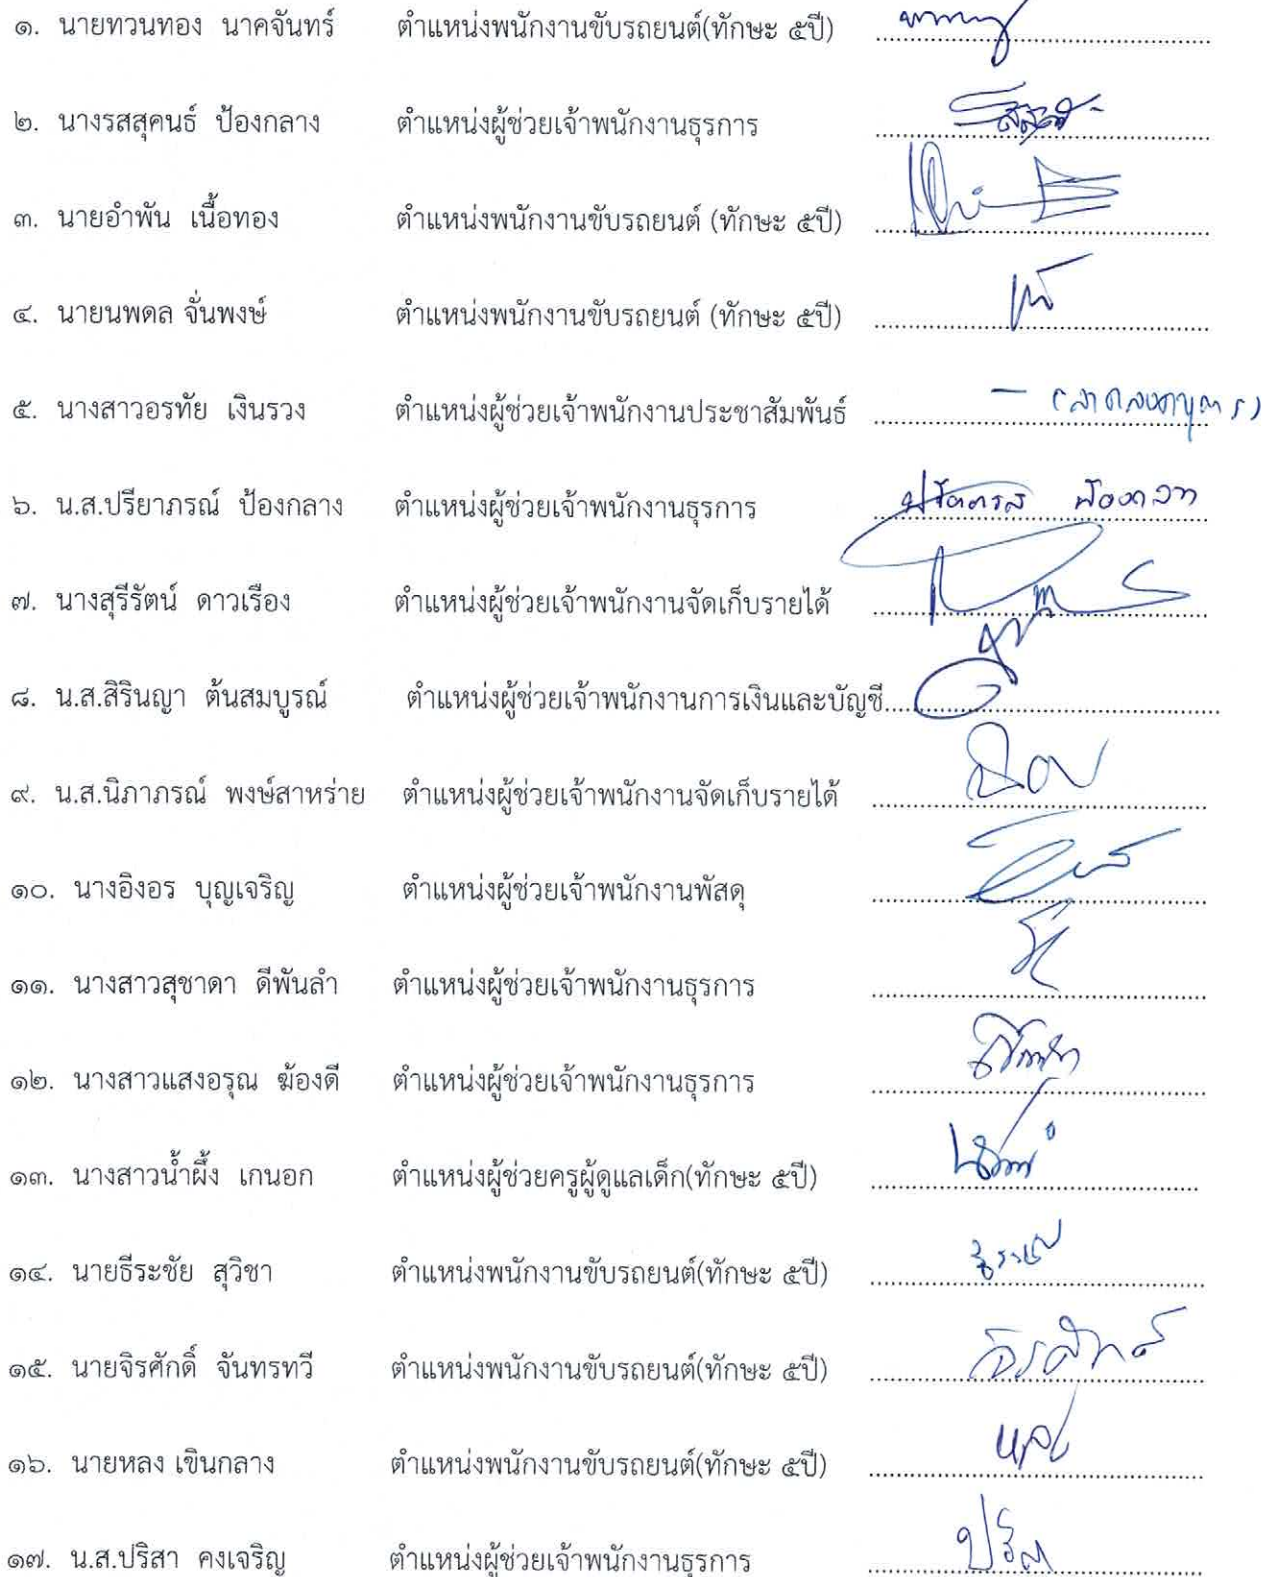 ๑. นายทวนทอง นาคจันทร์ ตำแหน่งพนักงานขับรถยนต์(ทักษะ ๕ปี) ........................................
๒. นางรสสุคนธ์ ป้องกลาง ตำแหน่งผู้ช่วยเจ้าพนักงานธุรการ ........................................
๓. นายอำพัน เนื้อทอง ตำแหน่งพนักงานขับรถยนต์ (ทักษะ ๕ปี) ........................................
๔. นายนพดล จั่นพงษ์ ตำแหน่งพนักงานขับรถยนต์ (ทักษะ ๕ปี) ........................................
๕. นางสาวอรทัย เงินรวง ตำแหน่งผู้ช่วยเจ้าพนักงานประชาสัมพันธ์ - (ลาคลอดบุตร)
๖. น.ส.ปรียาภรณ์ ป้องกลาง ตำแหน่งผู้ช่วยเจ้าพนักงานธุรการ ........................................
๗. นางสุรีรัตน์ ดาวเรือง ตำแหน่งผู้ช่วยเจ้าพนักงานจัดเก็บรายได้ ........................................
๘. น.ส.สิรินญา ต้นสมบูรณ์ ตำแหน่งผู้ช่วยเจ้าพนักงานการเงินและบัญชี........................................
๙. น.ส.นิภาภรณ์ พงษ์สาหร่าย ตำแหน่งผู้ช่วยเจ้าพนักงานจัดเก็บรายได้ ........................................
๑๐. นางอิงอร บุญเจริญ ตำแหน่งผู้ช่วยเจ้าพนักงานพัสดุ ........................................
๑๑. นางสาวสุชาดา ดีพันลำ ตำแหน่งผู้ช่วยเจ้าพนักงานธุรการ ........................................
๑๒. นางสาวแสงอรุณ ฆ้องดี ตำแหน่งผู้ช่วยเจ้าพนักงานธุรการ ........................................
๑๓. นางสาวน้ำผึ้ง เกนอก ตำแหน่งผู้ช่วยครูผู้ดูแลเด็ก(ทักษะ ๕ปี) ........................................
๑๔. นายธีระชัย สุวิชา ตำแหน่งพนักงานขับรถยนต์(ทักษะ ๕ปี) ........................................
๑๕. นายจิรศักดิ์ จันทรทวี ตำแหน่งพนักงานขับรถยนต์(ทักษะ ๕ปี) ........................................
๑๖. นายหลง เขินกลาง ตำแหน่งพนักงานขับรถยนต์(ทักษะ ๕ปี) ........................................
๑๗. น.ส.ปริสา คงเจริญ ตำแหน่งผู้ช่วยเจ้าพนักงานธุรการ ........................................